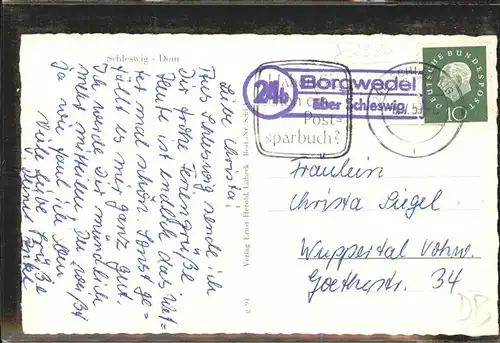 Schleswig - Dom
Liebe Christa!
Aus Schleswig sende ich
Dir frohe Feriengrüße
Heute ist endlich das Wet=
ter mal schön. Sonst ge=
fällt es mir ganz gut.
Ich werde Dir mündlich
mehr mitteilen. Du weißt
ja nun
Viele liebe Grüße
Deine
Verlag Ernst Herold, Lübeck
24b
Borgwedel
über Schleswig
Post=
sparbuch?
DEUTSCHE BUNDESPOST
10
Fräulein
Christa Siegel
Wuppertal Vohw.
Goethestr. 34
DB